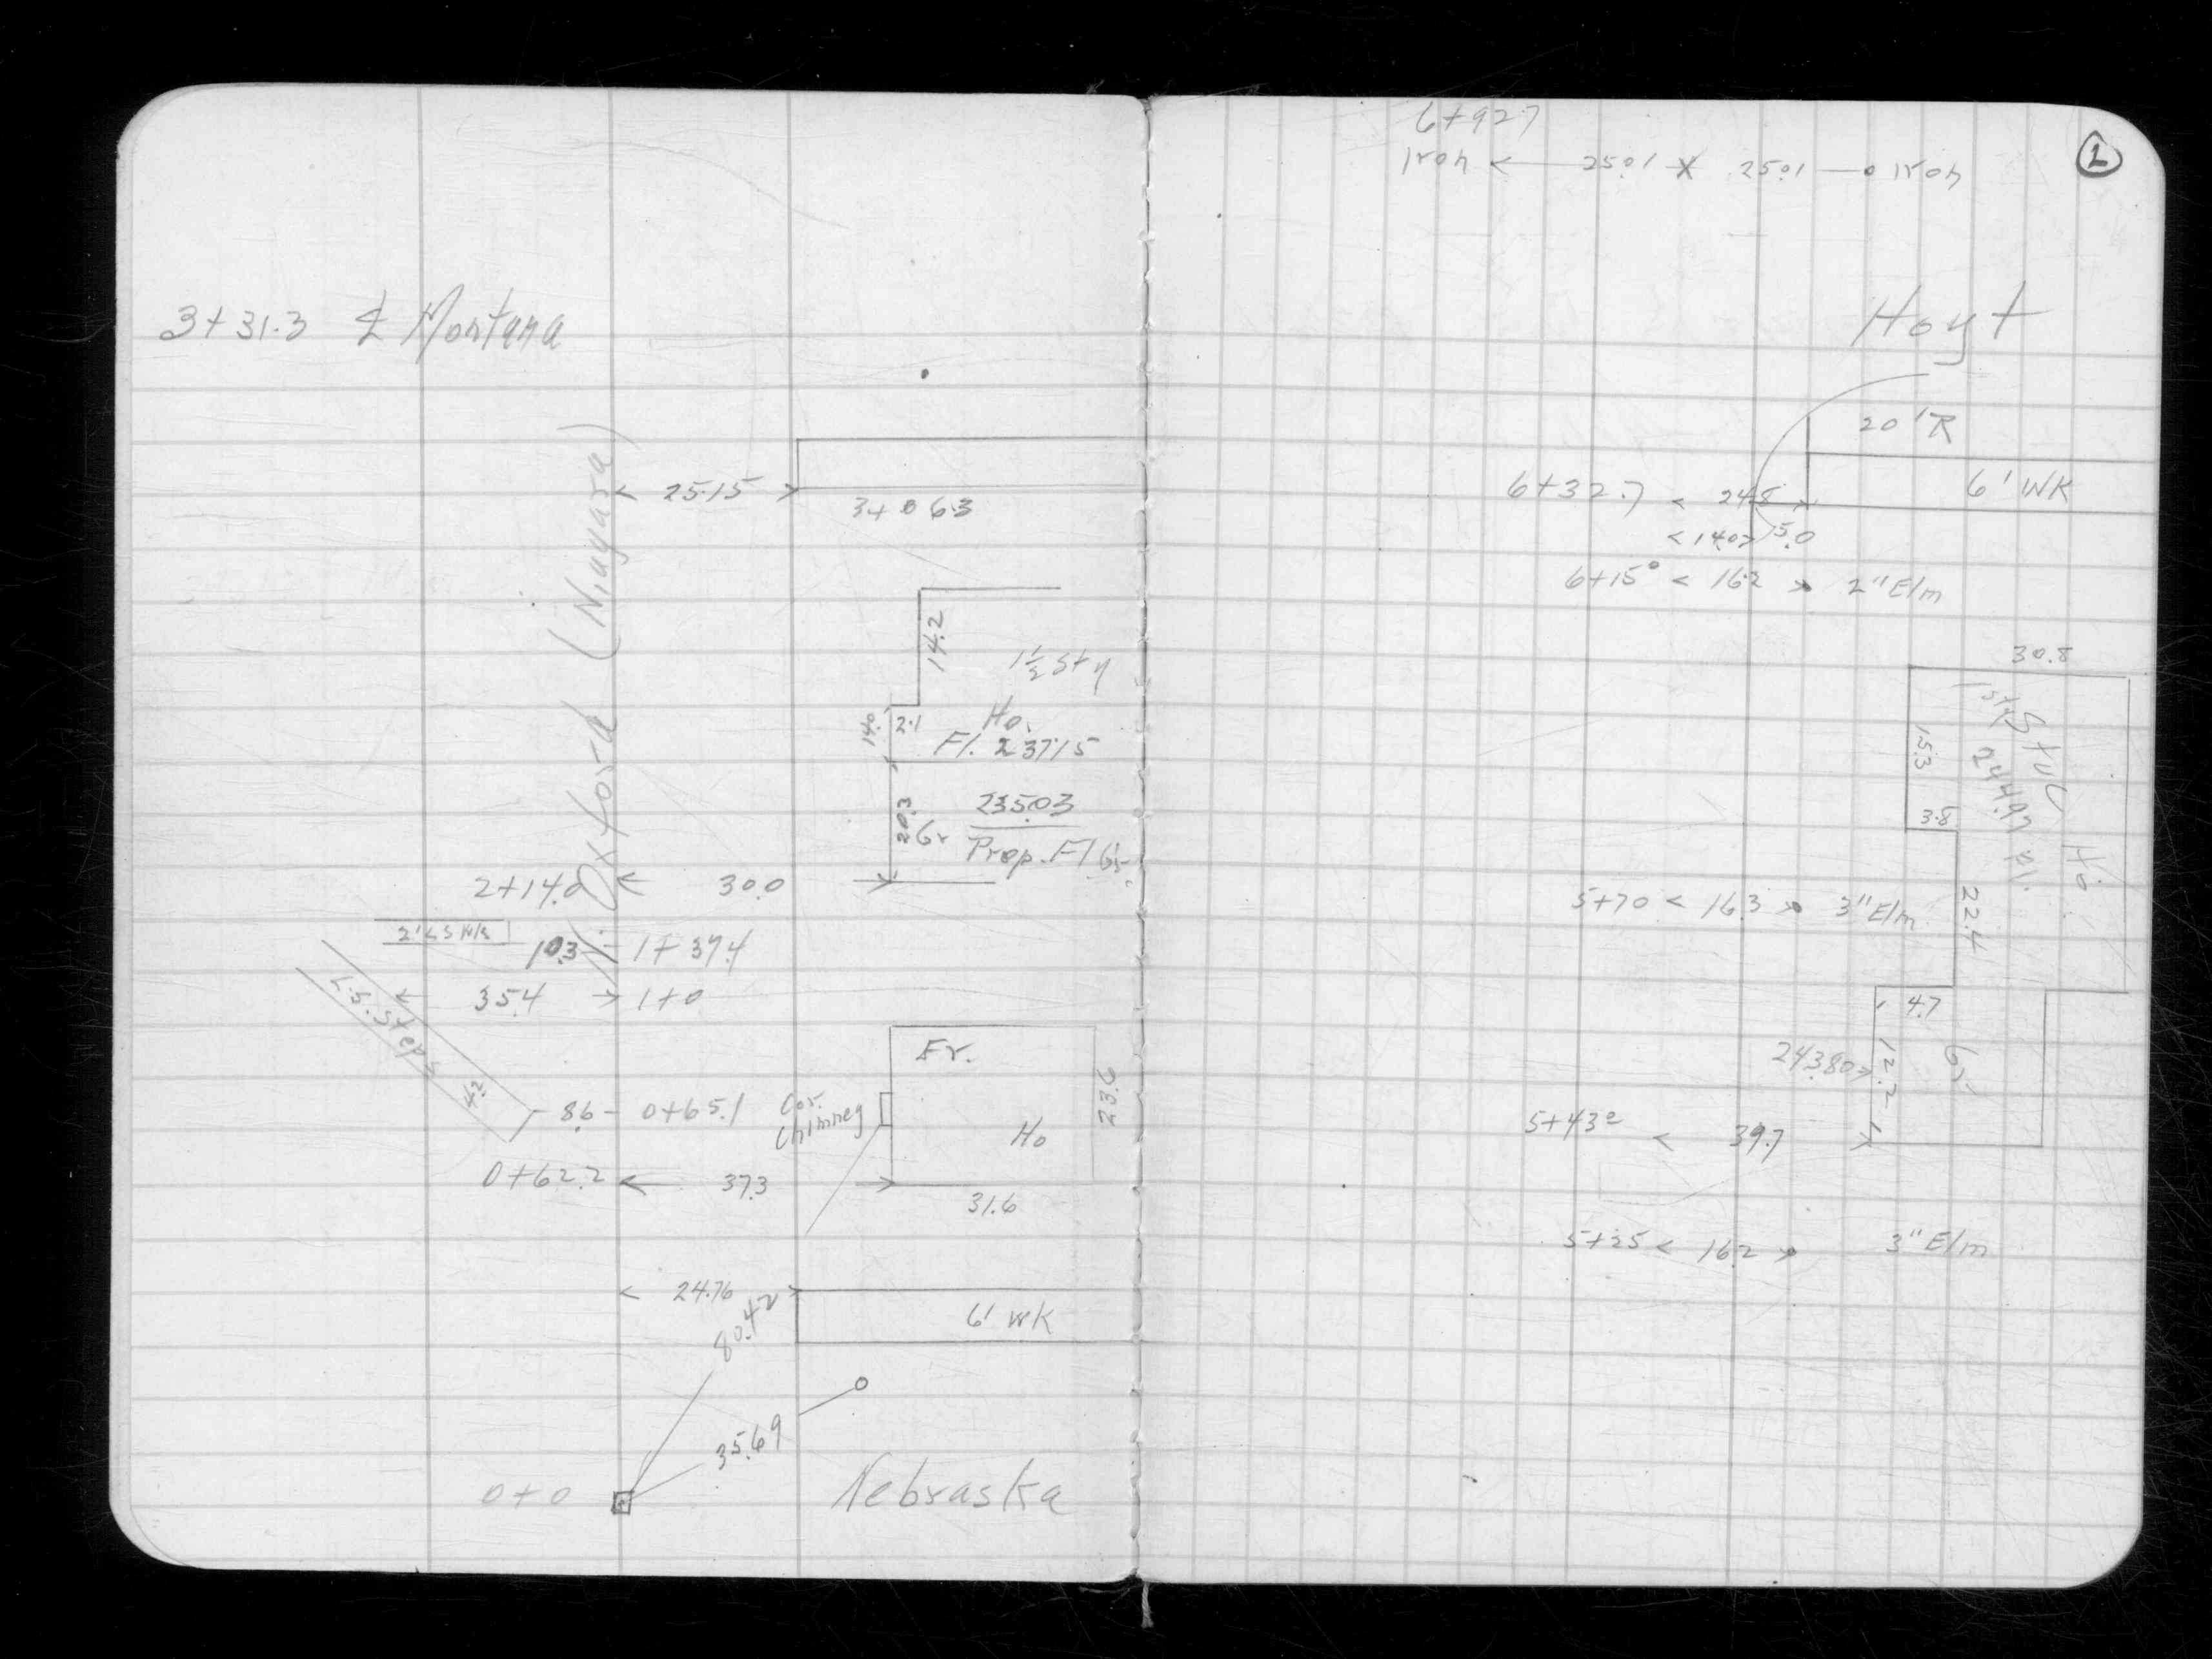 3+31.3 ℄ Montana
N. Oxford (Niagara)
25.15
3+06.3
14.2
1½ Sty
Ho.
14.0
2.1
Fl. 237.15
20.3
Gr
235.03
Prop. Fl Gr.
2+14.0
30.0
2' LS Wk
10.3
1+37.4
L.S. Steps
35.4
1+0
4.2
8.6
0+65.1
Cor.
Chimney
Fr.
Ho
23.0
0+62.2
37.3
31.6
24.76
80.42
6' WK
35.69
0+0
Nebraska
1
6+92.7
Iron
25.01 X 25.01
Iron
Hoyt
20' R
6+32.7
24.8
6' WK
14.0
5.0
6+15°
16.2
2" Elm
30.8
1 Sty
Stuc
Ho.
244.97 Fl.
15.3
3.8
22.4
5+70
16.3
3" Elm
4.7
243.80
12.2
Gr
5+43°
39.7
5+25
16.2
3" Elm